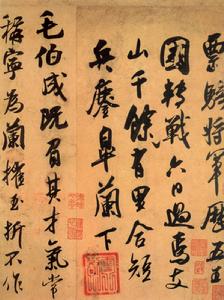 票騎將軍歷五王
國轉戰六日過焉支
山千餘有里合短
兵鏖皋蘭下
毛伯成既負其才氣常
稱寧為蘭摧玉折不作